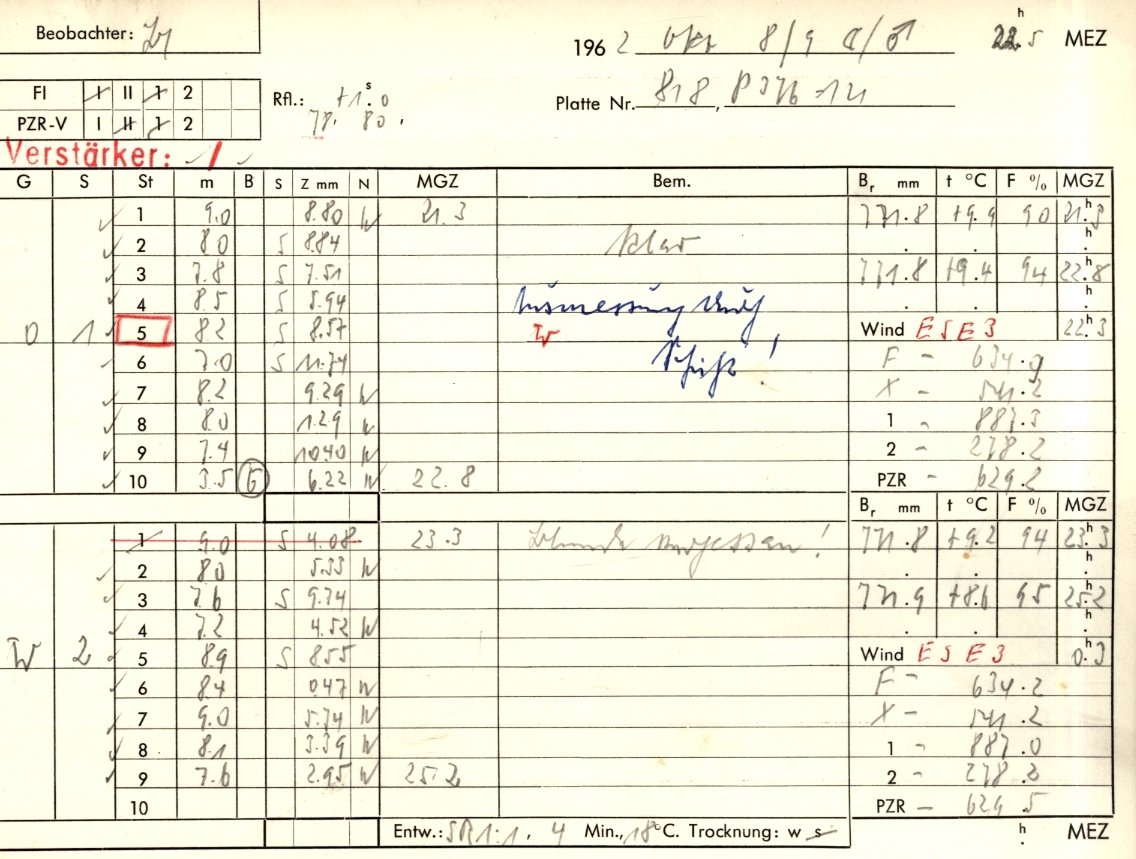 Beobachter:
196 2 Okt 8/9 22 h . 5 MEZ
FI I II 1 2
PZR-V I II 1 2
Rfl.: +1 s . 0
78. 80.
Platte Nr. 818, P 376-
Verstärker: 1
G S St m B S Z mm N MGZ Bem. Br mm t °C F % MGZ
1 9.0 8.80 W 21.3 771.8 +9.9 90 21 h . 3
2 8.0 S 8.84 klar
3 7.8 S 7.51 771.8 +9.4 94 22 h . 8
4 8.5 S 5.94 Ausmessung durch
O 1 5 8.2 S 8.57 W Wind ESE 3 22 h . 3
6 7.0 S 11.74 F - 634.9
7 8.2 9.29 W X - 541.2
8 8.0 1.29 W 1 - 887.3
9 7.4 10.40 W 2 - 278.2
10 3.5 G 6.22 W 22.8 PZR - 629.2
Br mm t °C F % MGZ
1 9.0 S 4.08 23.3 vergessen! 771.8 +9.2 94 23 h . 3
2 8.0 5.33 W
3 7.6 S 9.74 771.9 +8.6 95 25 h . 2
4 7.2 4.52 W
W 2 5 8.9 S 8.55 Wind ESE 3 0 h . 3
6 8.4 0.47 W F - 634.2
7 9.0 5.74 W X - 541.2
8 8.1 3.39 W 1 - 887.0
9 7.6 2.95 W 25.2 2 - 278.2
10 PZR - 629.5
Entw.: SR 1:1, 4 Min., 18°C. Trocknung: w s h . MEZ